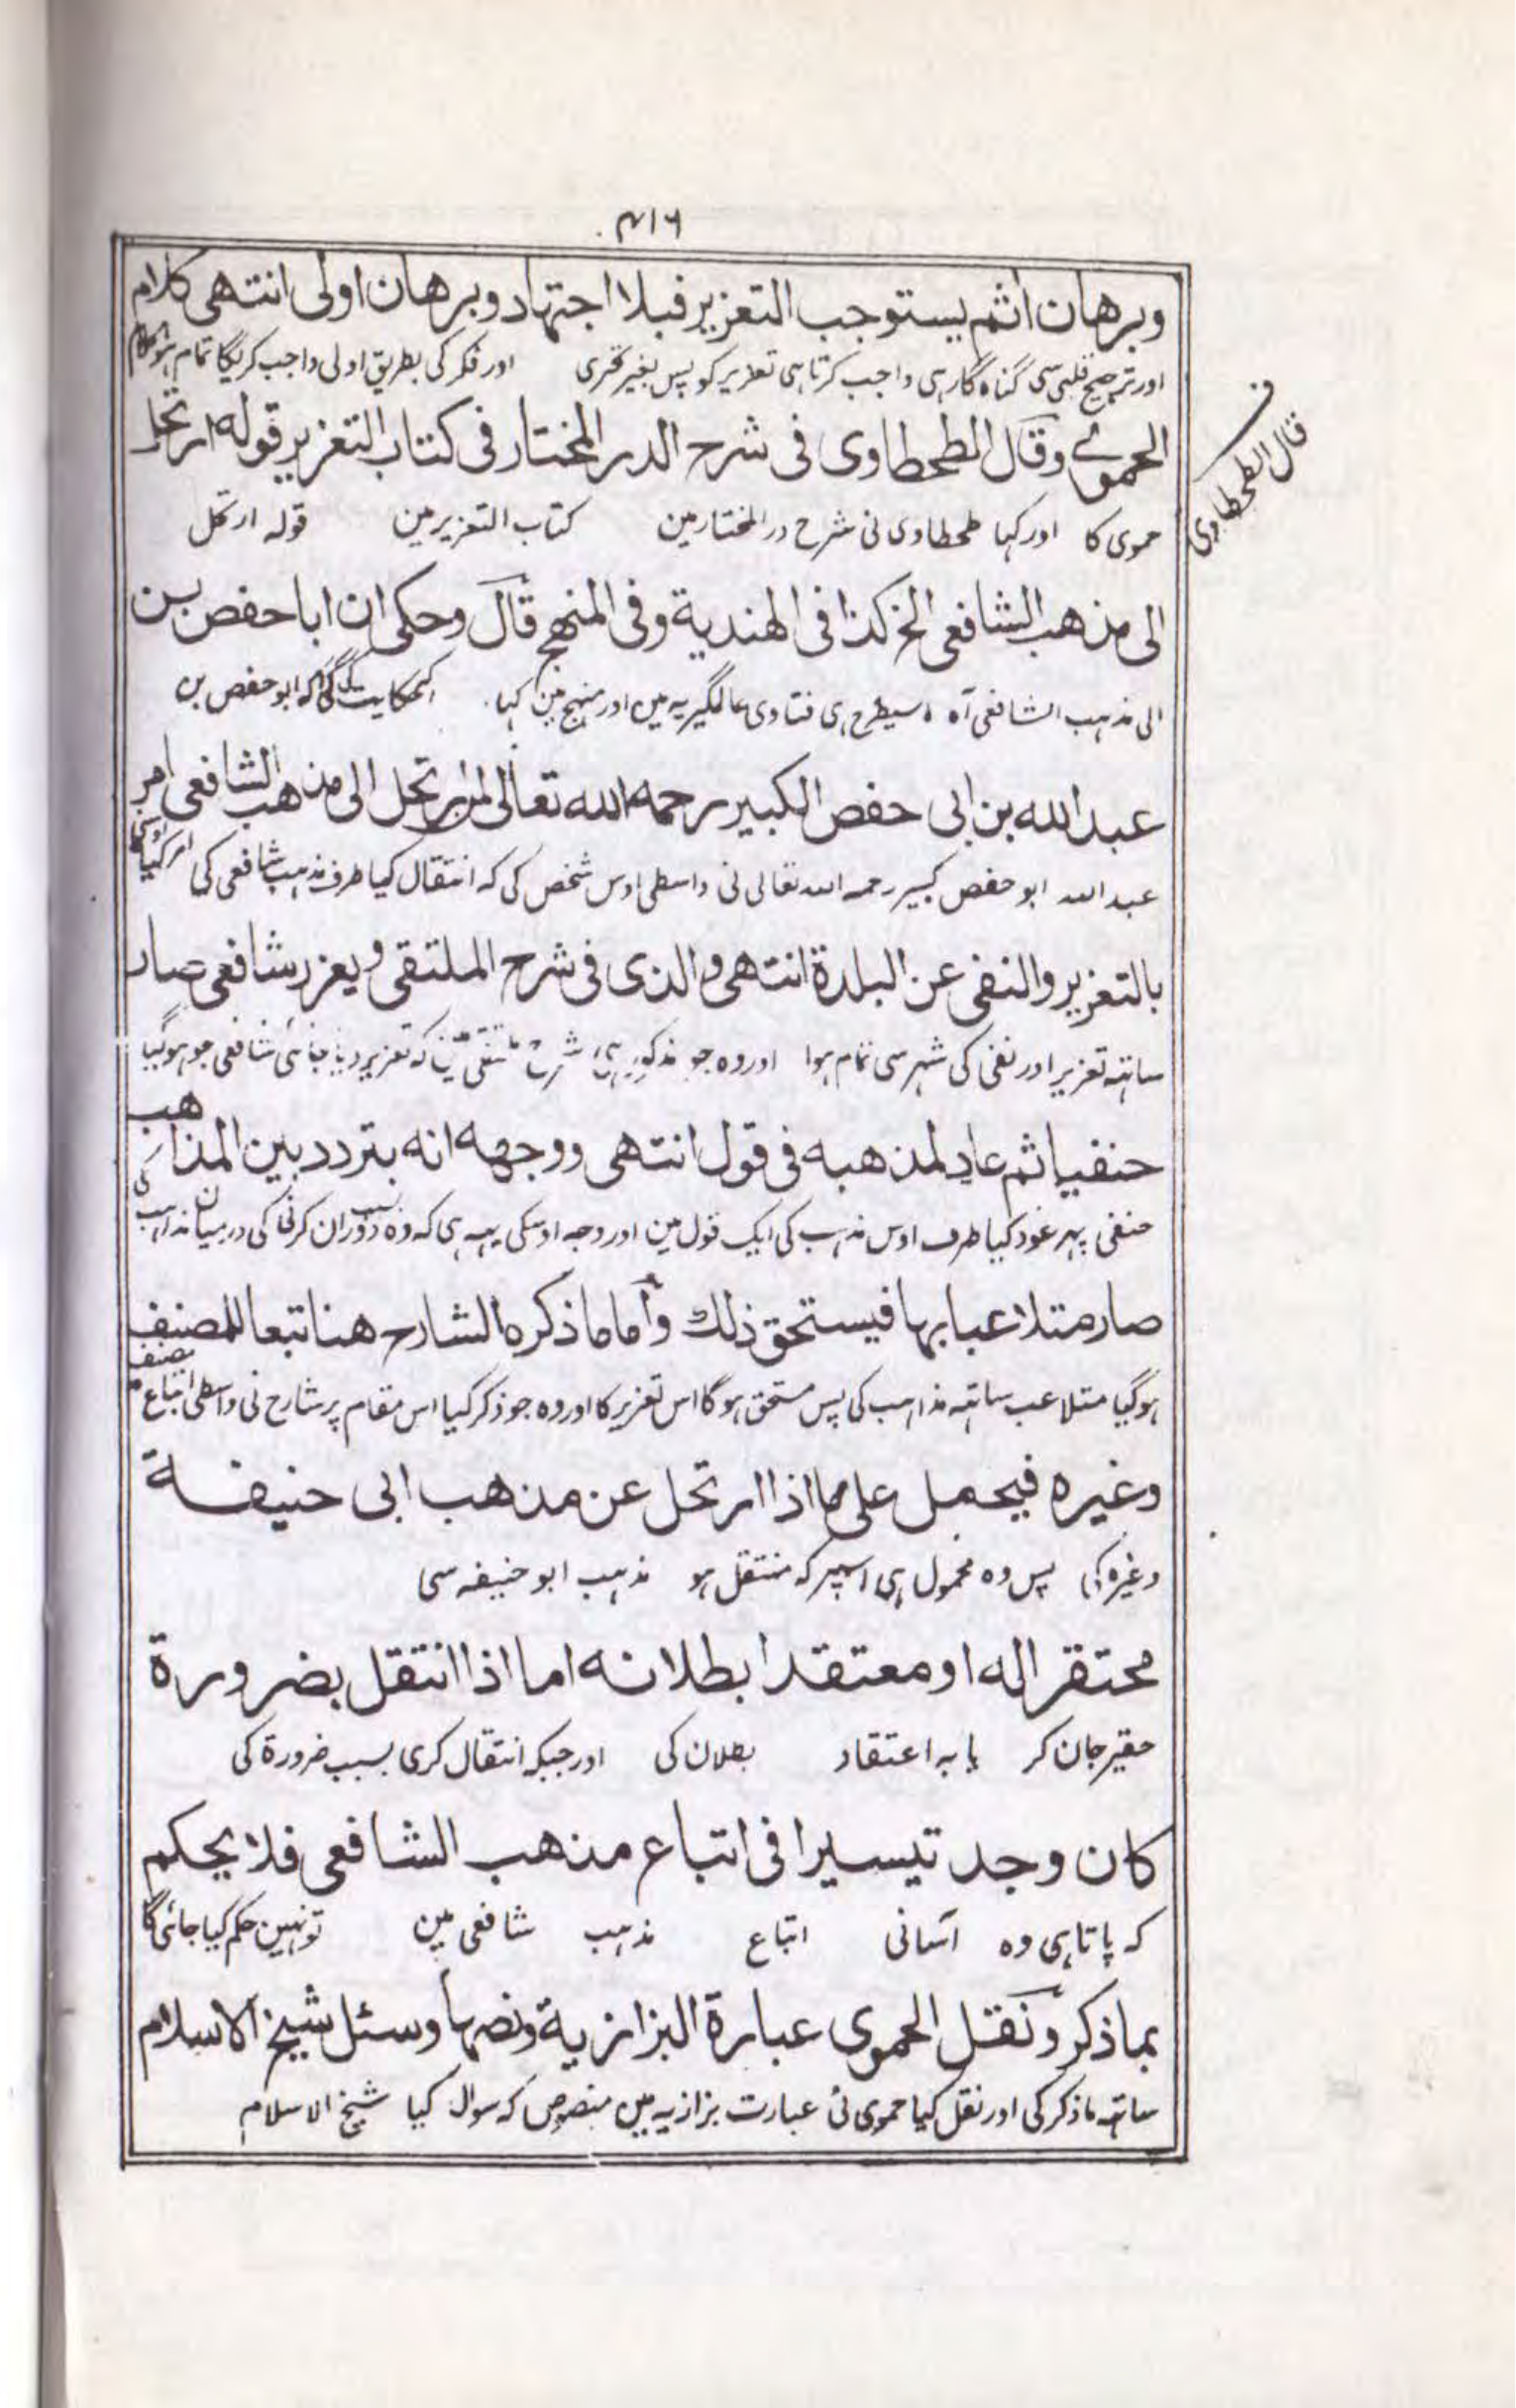 ۴۱۶
وبرهان اثم يستوجب التعزير فبلا اجتهاد وبرهان اولى انتهى كلام
اور ترجیح قلبی سی گناہ گار ہی واجب کرتا ہی تعزیر کو پس بغیر تحری اور فکر کی بطریق اولی واجب کریگا تمام ہوا کلام
قال الطحطاوی
الحموي وقال الطحطاوى فى شرح الدر المختار فى كتاب التعزير قوله ارتحل
حموی کا اور کہا طحطاوی نی شرح در المختار مین کتاب التعزیر مین قولہ ارتحل
الى مذهب الشافعى الخ كذا فى الهندية وفى المنهج قال وحكى ان ابا حفص بن
الی مذہب الشافعی آہ اسیطرح ہی فتاوی عالمگیریہ مین اور منہج مین کہا کہ ابو حفص بن
عبد الله بن ابى حفص الكبير رحمه الله تعالى لمن ارتحل الى مذهب الشافعى امر
عبد اللہ ابو حفص کبیر رحمہ اللہ تعالی نی واسطی اوس شخص کی کہ انتقال کیا طرف مذہب شافعی کی امر کیا
بالتعزير والنفى عن البلدة انتهى والذى فى شرح الملتقى ويعزر شافعى صار
ساتہہ تعزیر اور نفی کی شہر سی تمام ہوا اور وہ جو مذکور ہی شرح ملتقی مین کہ تعزیر دیا جائی شافعی جو ہو گیا
حنفيا ثم عاد لمذهبه فى قول انتهى ووجهه انه بتردد بين المذاهب
حنفی پہر عود کیا طرف اوس مذہب کی ایک قول مین اور وجہ اوسکی یہہ ہی کہ وہ بسبب دوران کرنی کی درمیان مذاہب کی
صار متلاعبا بها فيستحق ذلك واما ما ذكره الشارح هنا تبعا للمصنف
ہو گیا متلاعب ساتہہ مذاہب کی پس مستحق ہو گا اس تعزیر کا اور وہ جو ذکر کیا اس مقام پر شارح نی واسطی اتباع مصنف
وغيره فيحمل على ما اذا ارتحل عن مذهب ابى حنيفة
وغیرہ کی پس وہ محمول ہی اسپر کہ منتقل ہو مذہب ابو حنیفہ سی
محتقرا له او معتقدا بطلانه اما اذا انتقل بضرورة
حقیر جان کر یا بہ اعتقاد بطلان کی اور جبکہ انتقال کری بسبب ضرورۃ کی
كان وجد تيسيرا فى اتباع مذهب الشافعى فلا يحكم
کہ پاتا ہی وہ آسانی اتباع مذہب شافعی مین تو نہین حکم کیا جائی گا
بما ذكر ونقل الحموى عبارة البزازية ونصها وسئل شيخ الاسلام
ساتہہ ما ذکر کی اور نقل کیا حموی نی عبارت بزازیہ مین منصوص کہ سوال کیا شیخ الاسلام